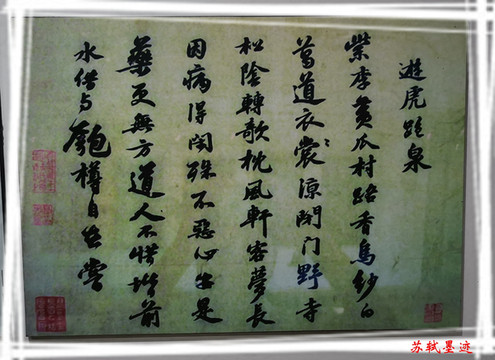 遊虎跑泉
紫李黃瓜村路香烏紗白
葛道衣裳涼閉门野寺
松陰轉欹枕風軒客夢長
因病得閒殊不惡心安是
藥更無方道人不惜堦前
水借与匏樽自在嘗
苏轼墨迹